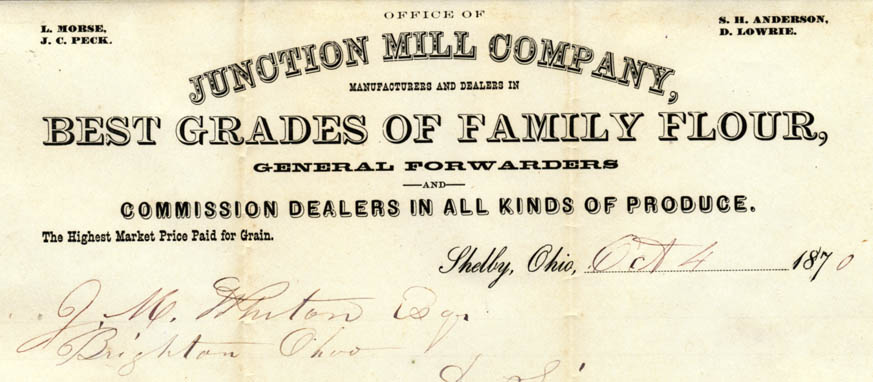 OFFICE OF
L. MORSE,
J. C. PECK.
S. H. ANDERSON,
D. LOWRIE.
JUNCTION MILL COMPANY,
MANUFACTURERS AND DEALERS IN
BEST GRADES OF FAMILY FLOUR,
GENERAL FORWARDERS
—AND—
COMMISSION DEALERS IN ALL KINDS OF PRODUCE.
The Highest Market Price Paid for Grain.
Shelby, Ohio, Oct 4 1870
J. M. Whiton Esqr
Brighton Ohio